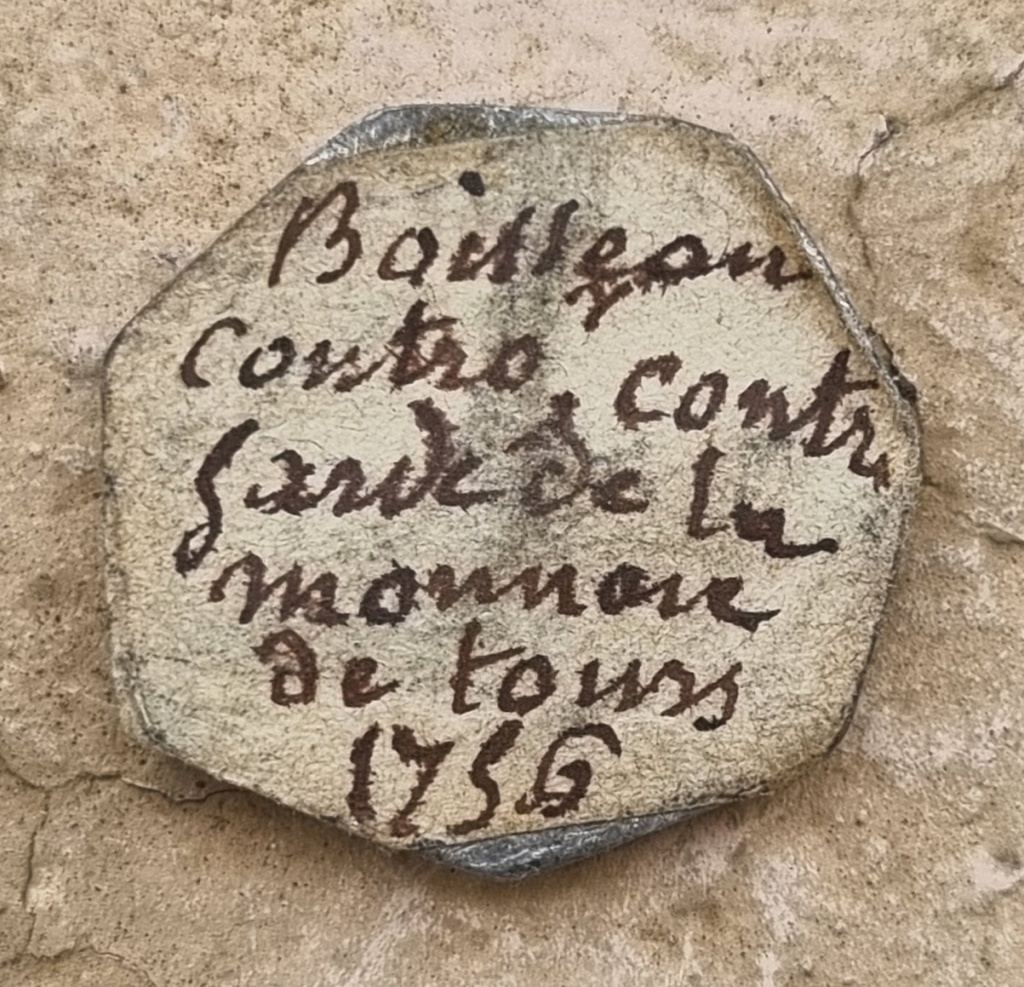 Boilleau
contro contr
garde de la
monnoie
de tours
1756